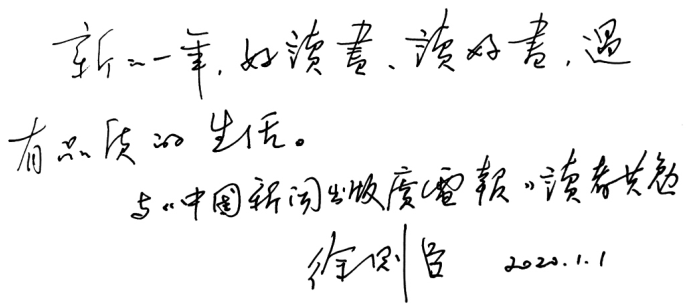 新的一年,好讀書、讀好書,過
有品质的生活。
与《中國新闻出版廣電報》讀者共勉
徐则臣 2020.1.1